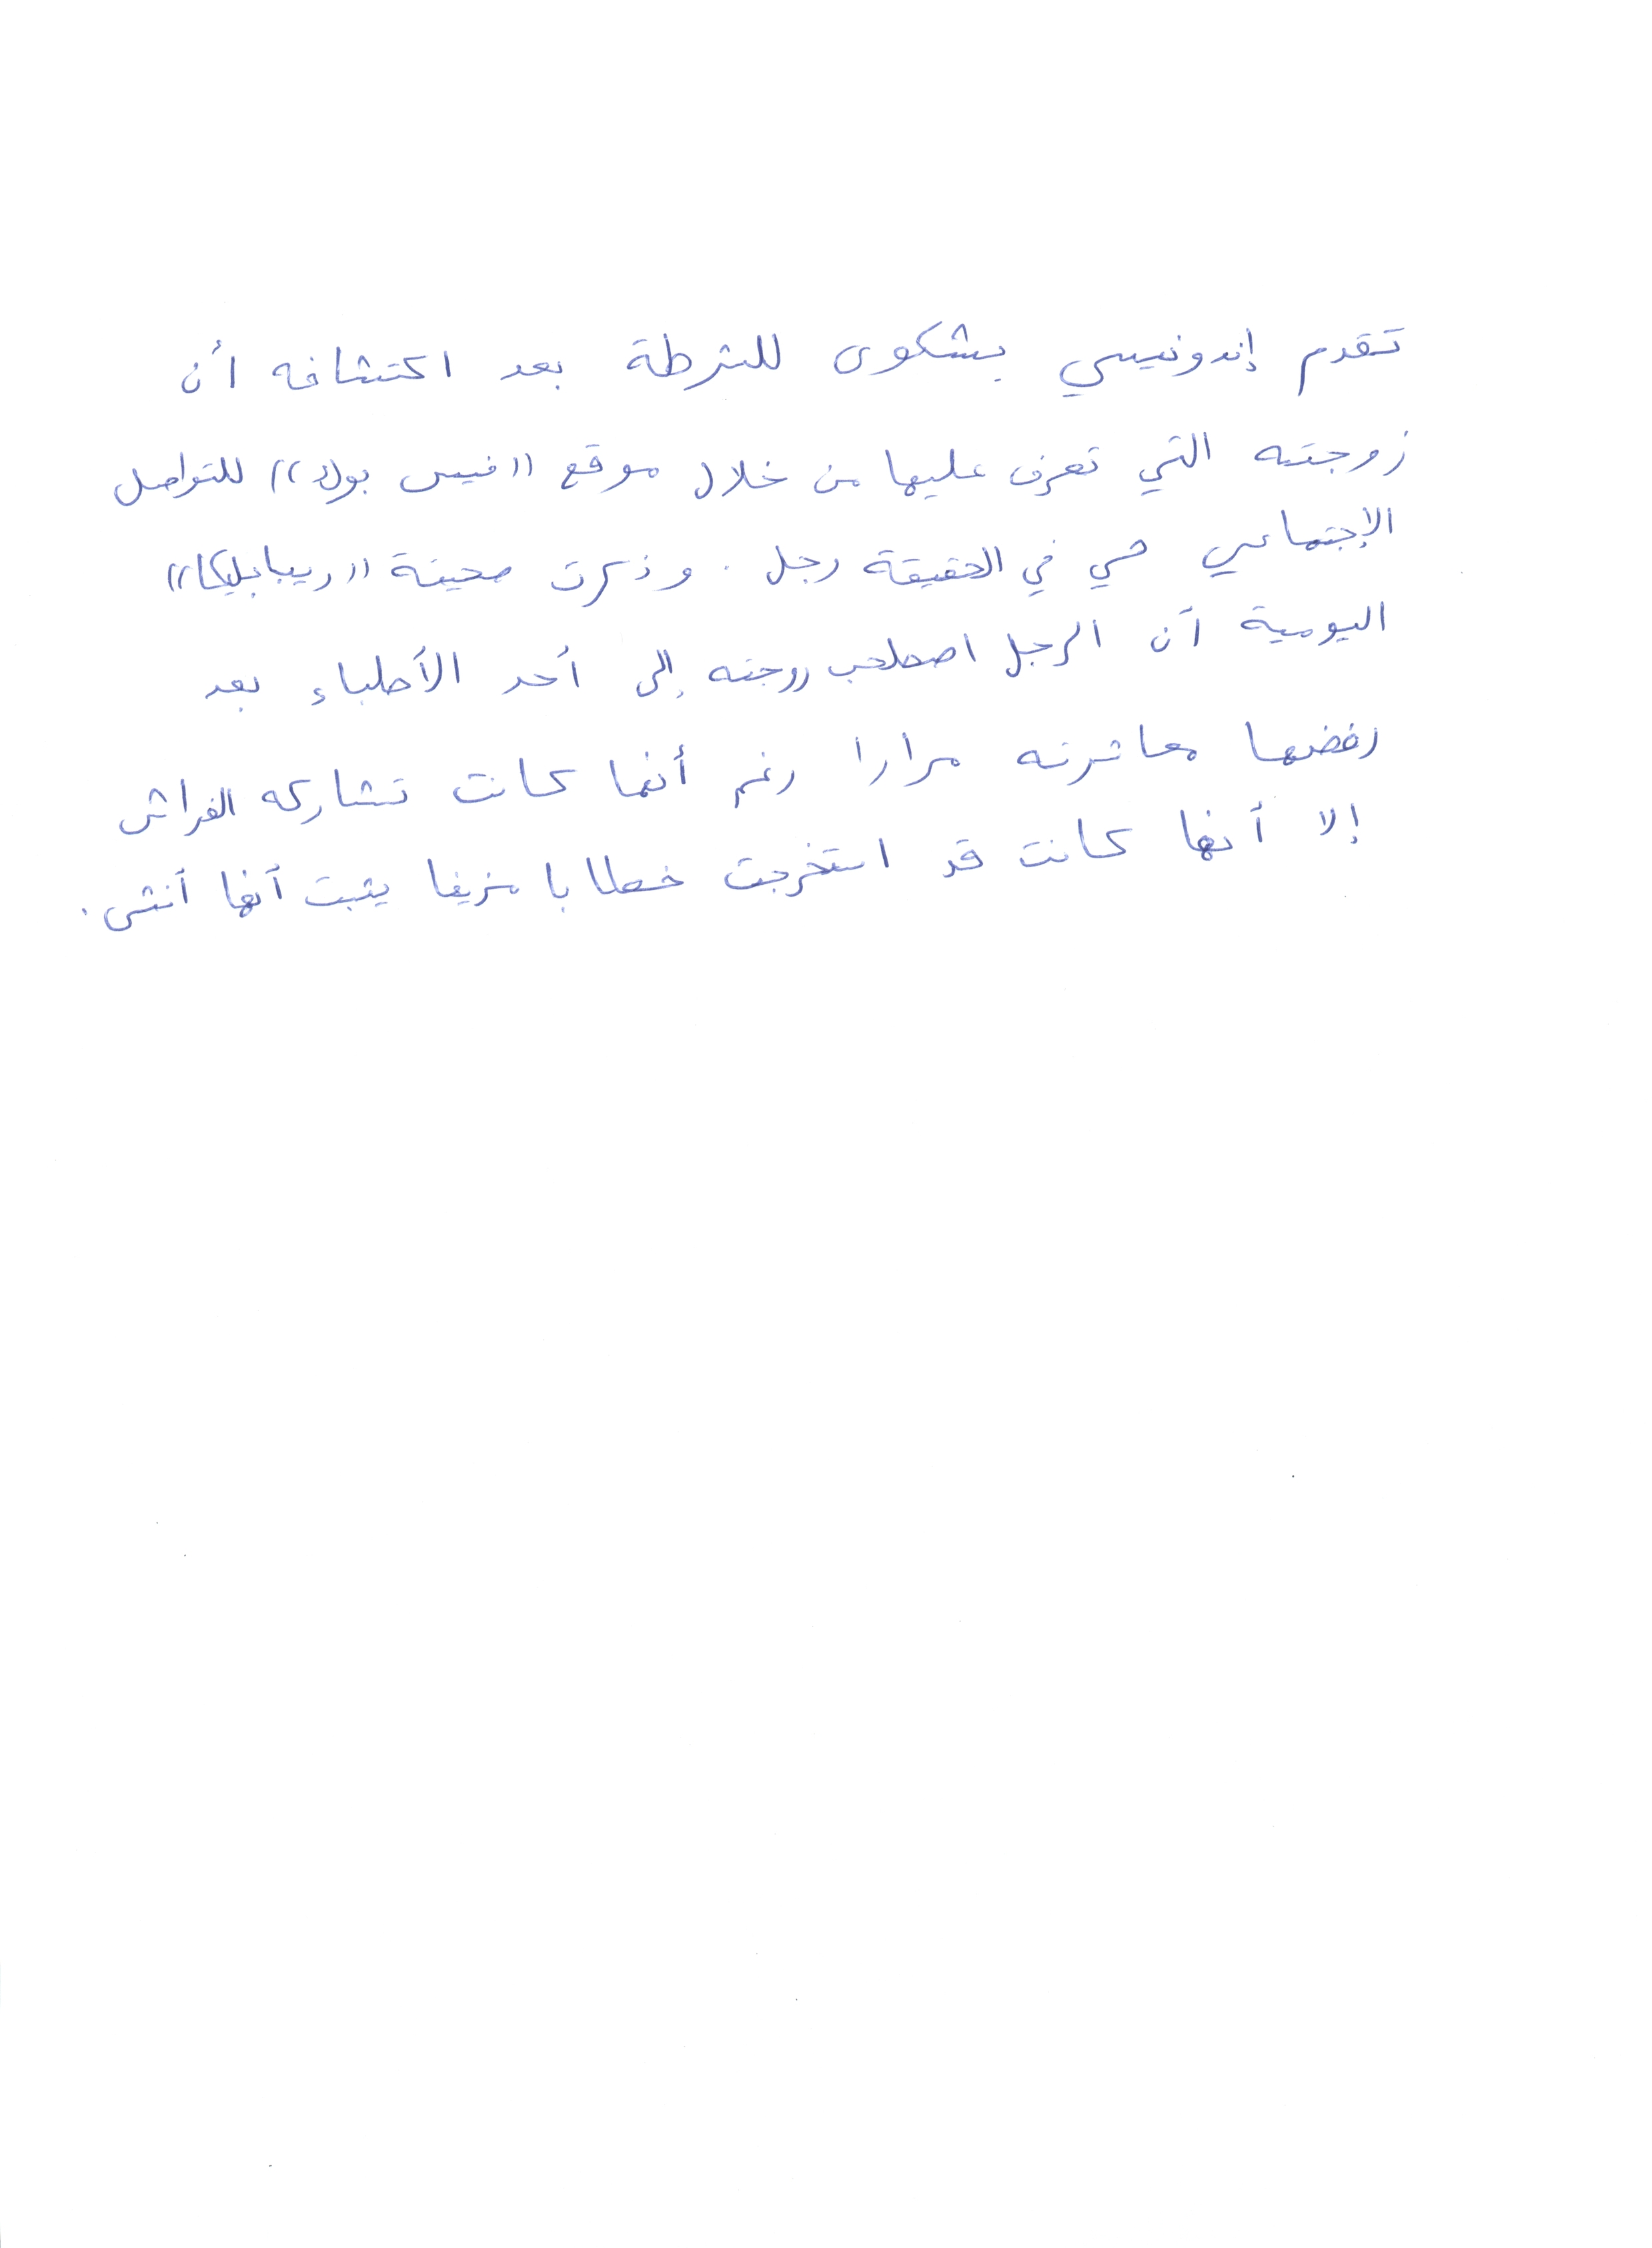 تقدم إندونيسي بشكوى للشرطة بعد اكتشافه أن
زوجته التي تعرف عليها من خلال موقع ((فيس بوك)) للتواصل
الإجتماعي هي في الحقيقة رجل. وذكرت صحيفة ((ريبابليكا))
اليومية أن الرجل اصطحب زوجته إلى أحد الأطباء بعد
رفضها معاشرته مرارا رغم أنها كانت تشاركه الفراش
إلا أنها كانت قد استخرجت خطابا مزيفا يثبت أنها أنثى.